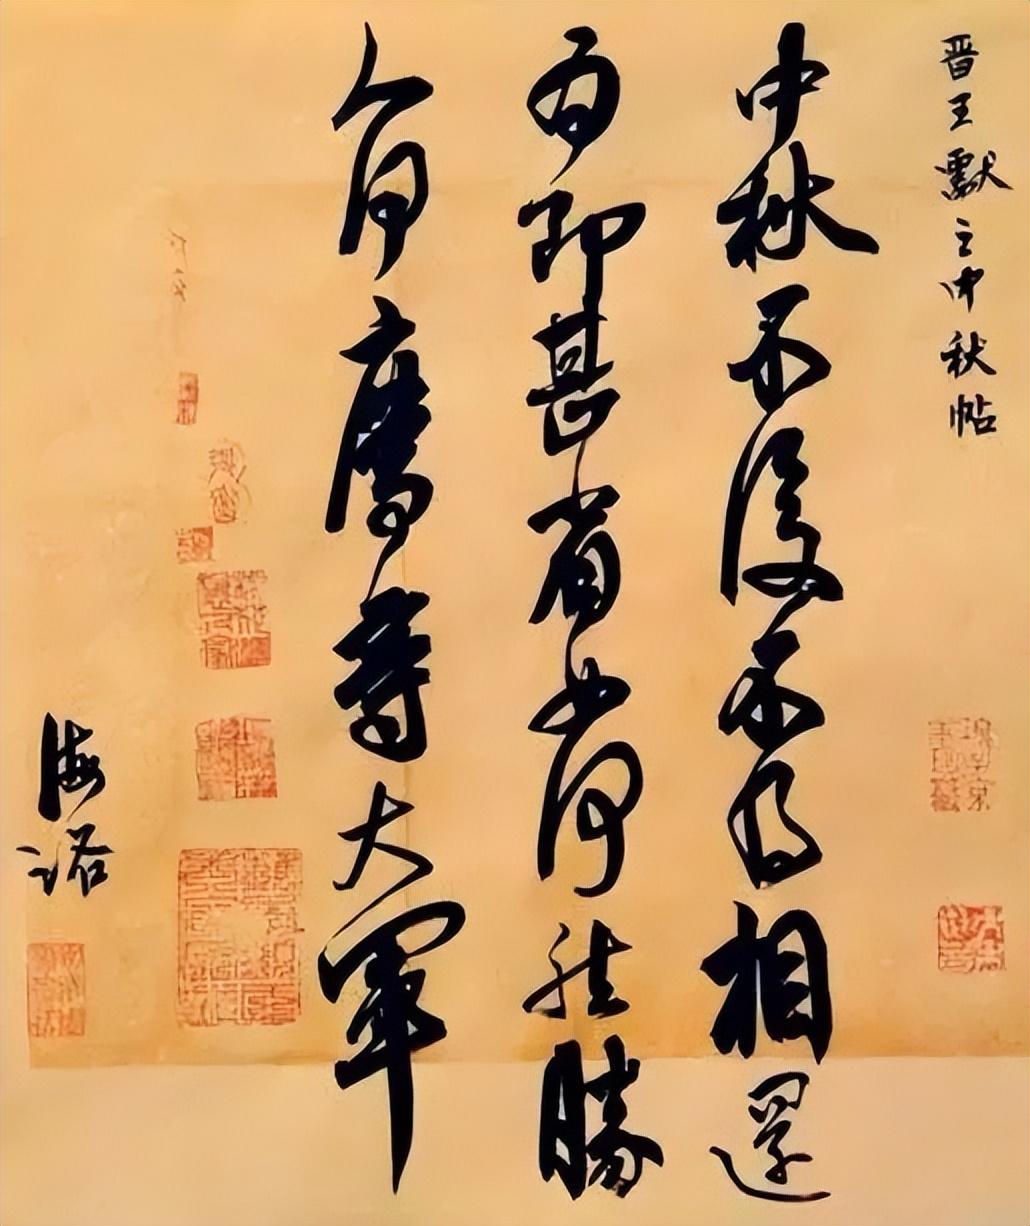 晋王獻之中秋帖
中秋不復不得相還
為即甚省如何然勝
人何慶等大軍
海诺